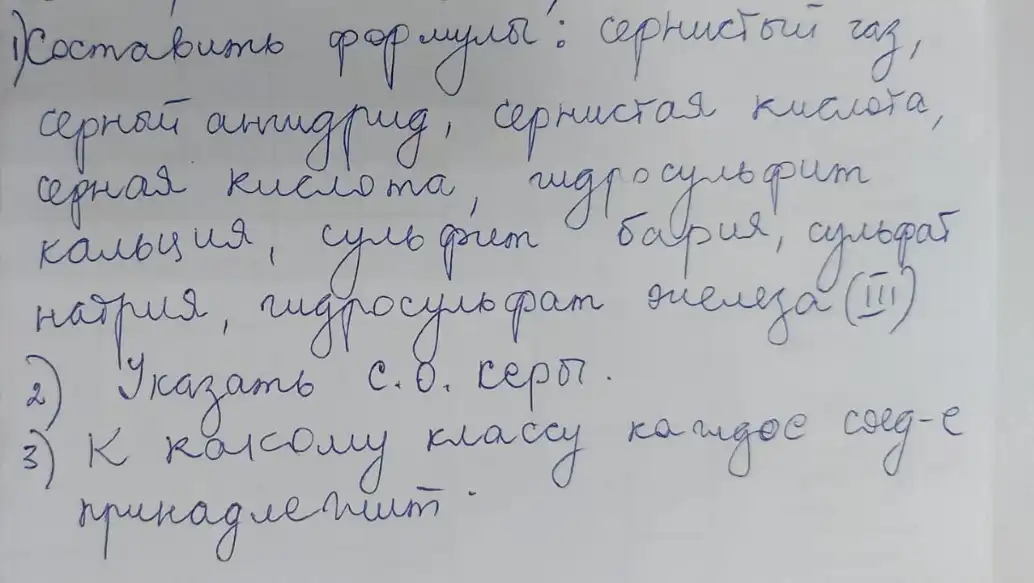 1) Составить формулы: сернистый газ,
серный ангидрид, сернистая кислота,
серная кислота, гидросульфит
кальция, сульфит бария, сульфат
натрия, гидросульфат железа (III)
2) Указать с.о. серы.
3) К какому классу каждое соед-е
принадлежит.